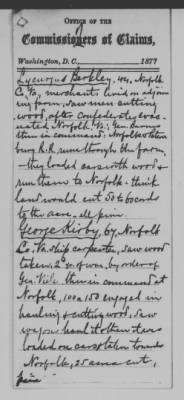 OFFICE OF THE
Commissioners of Claims,
Washington, D.C., 1877
Lycurgus Berkley, 44, Norfolk
Co. Va, merchant: lived on adjoin
ing farm; saw men cutting
wood, after Confederates evac-
uated Norfolk, Va; Gen.
then in command; Norfolk
R.R. runs through the farm,
they loaded cars with wood &
run them to Norfolk; think
land would cut 50 to 60 cords
to the acre,
George Kirby, 67, Norfolk
Co. Va, ship carpenter, saw wood
taken, 2d yr of war, by order of
Gen. Viele then in command at
Norfolk, 100 or 150 engaged in
hauling & cutting wood, saw
wagons haul it other times
loaded on cars & taken towards
Norfolk, 25 acres cut,